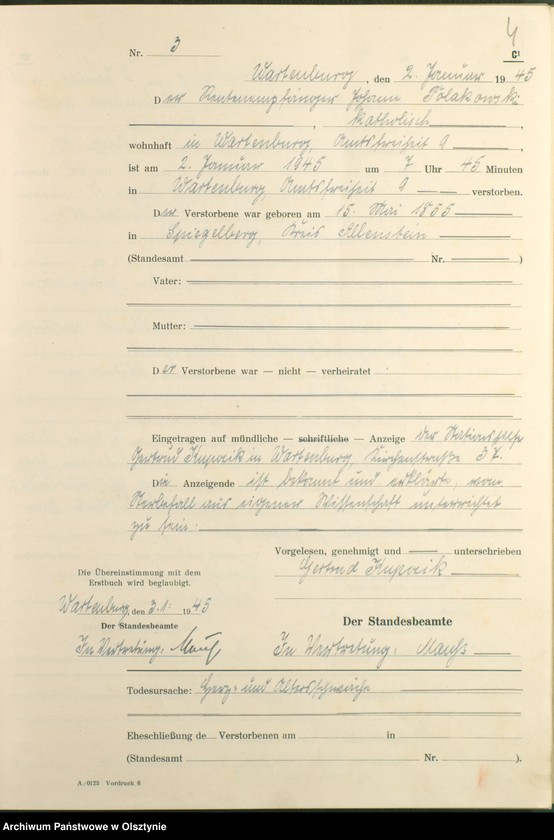 4
C1
Nr. 3
Wartenburg, den 2. Januar 1945
Der Rentenempfänger Johann Polakowski
katholisch,
wohnhaft in Wartenburg, Amtsfreiheit 9,
ist am 2. Januar 1945 um 7 Uhr 45 Minuten
in Wartenburg, Amtsfreiheit 9 verstorben.
Der Verstorbene war geboren am 15. Mai 1855
in Spiegelberg, Kreis Allenstein
(Standesamt Nr. )
Vater:
Mutter:
Der Verstorbene war — nicht — verheiratet
Eingetragen auf mündliche — schriftliche — Anzeige der Stationshilfe
Gertrud in Wartenburg, Kirchenstraße
Die Anzeigende ist bekannt und erklärte, vom
Sterbefall aus eigener Wissenschaft unterrichtet
zu sein.
Vorgelesen, genehmigt und unterschrieben
Gertrud
Die Übereinstimmung mit dem
Erstbuch wird beglaubigt.
Wartenburg, den 3.1. 1945
Der Standesbeamte
In Vertretung:
Der Standesbeamte
In Vertretung:
Todesursache: Herz- und Altersschwäche
Eheschließung de Verstorbenen am in
(Standesamt Nr. ).
A/0123 Vordruck 6
Archiwum Państwowe w Olsztynie